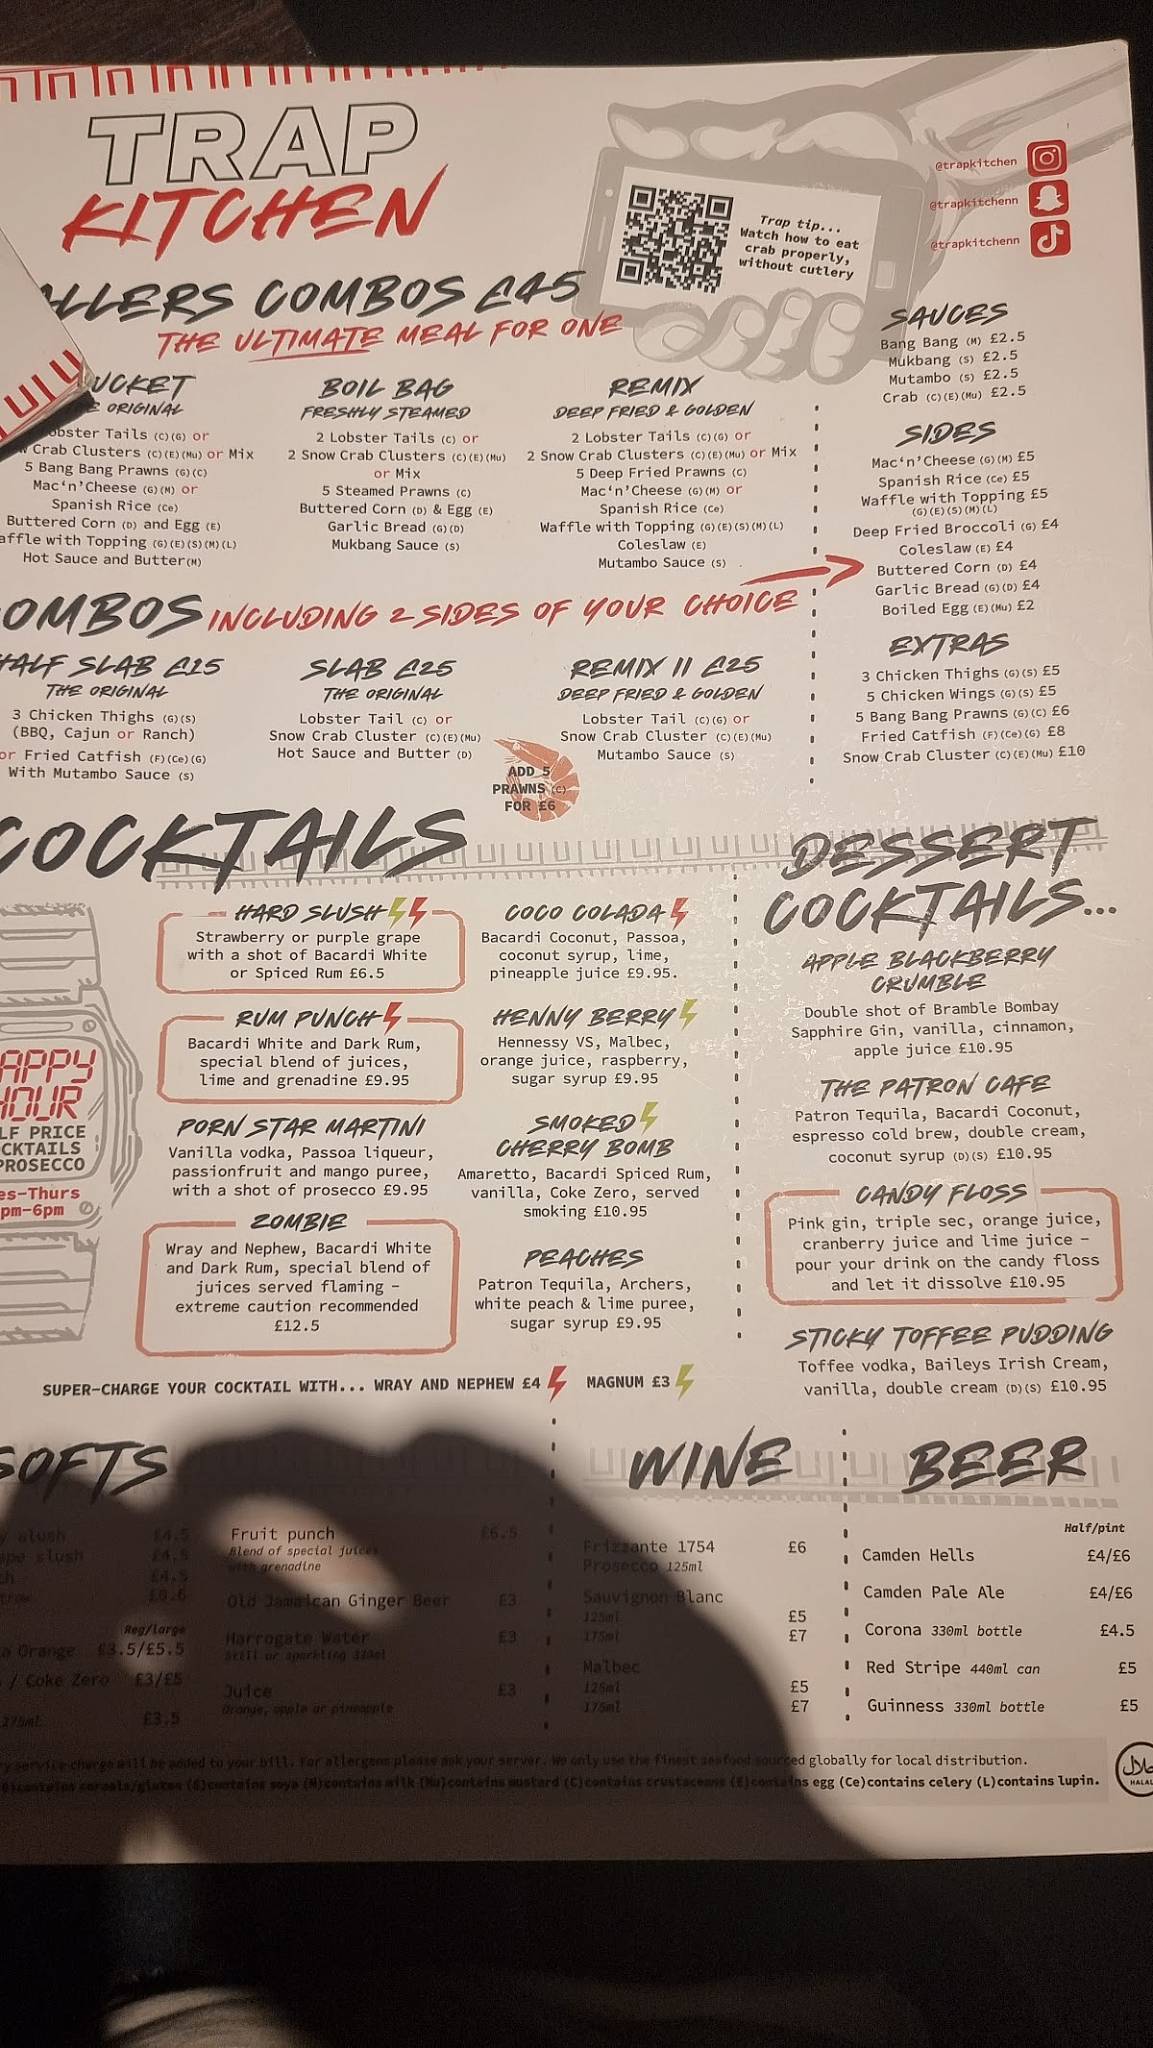 TRAP
KITCHEN
@trapkitchen
@trapkitchenn
@trapkitchenn
Trap tip...
Watch how to eat
crab properly,
without cutlery
COMBOS £45
THE ULTIMATE MEAL FOR ONE
ORIGINAL
Tails (C)(G) or
Crab Clusters (C)(E)(Mu) or Mix
5 Bang Bang Prawns (G)(C)
Mac'n'Cheese (G)(M) or
Spanish Rice (Ce)
Buttered Corn (D) and Egg (E)
with Topping (G)(E)(S)(M)(L)
Hot Sauce and Butter(M)
BOIL BAG
FRESHLY STEAMED
2 Lobster Tails (C) or
2 Snow Crab Clusters (C)(E)(Mu)
or Mix
5 Steamed Prawns (C)
Buttered Corn (D) & Egg (E)
Garlic Bread (G)(D)
Mukbang Sauce (S)
REMIX
DEEP FRIED & GOLDEN
2 Lobster Tails (C)(G) or
2 Snow Crab Clusters (C)(E)(Mu) or Mix
5 Deep Fried Prawns (C)
Mac'n'Cheese (G)(M) or
Spanish Rice (Ce)
Waffle with Topping (G)(E)(S)(M)(L)
Coleslaw (E)
Mutambo Sauce (S)
SAUCES
Bang Bang (M) £2.5
Mukbang (S) £2.5
Mutambo (S) £2.5
Crab (C)(E)(Mu) £2.5
SIDES
Mac'n'Cheese (G)(M) £5
Spanish Rice (Ce) £5
Waffle with Topping £5
(G)(E)(S)(M)(L)
Deep Fried Broccoli (G) £4
Coleslaw (E) £4
Buttered Corn (D) £4
Garlic Bread (G)(D) £4
Boiled Egg (E)(Mu) £2
EXTRAS
3 Chicken Thighs (G)(S) £5
5 Chicken Wings (G)(S) £5
5 Bang Bang Prawns (G)(C) £6
Fried Catfish (F)(Ce)(G) £8
Snow Crab Cluster (C)(E)(Mu) £10
INCLUDING 2 SIDES OF YOUR CHOICE
HALF SLAB £15
THE ORIGINAL
3 Chicken Thighs (G)(S)
(BBQ, Cajun or Ranch)
or Fried Catfish (F)(Ce)(G)
With Mutambo Sauce (S)
SLAB £25
THE ORIGINAL
Lobster Tail (C) or
Snow Crab Cluster (C)(E)(Mu)
Hot Sauce and Butter (D)
REMIX II £25
DEEP FRIED & GOLDEN
Lobster Tail (C)(G) or
Snow Crab Cluster (C)(E)(Mu)
Mutambo Sauce (S)
ADD 5
PRAWNS (C)
FOR £6
COCKTAILS
PRICE
PROSECCO
pm-6pm
HARD SLUSH
Strawberry or purple grape
with a shot of Bacardi White
or Spiced Rum £6.5
RUM PUNCH
Bacardi White and Dark Rum,
special blend of juices,
lime and grenadine £9.95
PORN STAR MARTINI
Vanilla vodka, Passoa liqueur,
passionfruit and mango puree,
with a shot of prosecco £9.95
ZOMBIE
Wray and Nephew, Bacardi White
and Dark Rum, special blend of
juices served flaming –
extreme caution recommended
£12.5
COCO COLADA
Bacardi Coconut, Passoa,
coconut syrup, lime,
pineapple juice £9.95.
HENNY BERRY
Hennessy VS, Malbec,
orange juice, raspberry,
sugar syrup £9.95
SMOKED
CHERRY BOMB
Amaretto, Bacardi Spiced Rum,
vanilla, Coke Zero, served
smoking £10.95
PEACHES
Patron Tequila, Archers,
white peach & lime puree,
sugar syrup £9.95
SUPER-CHARGE YOUR COCKTAIL WITH... WRAY AND NEPHEW £4 MAGNUM £3
DESSERT
COCKTAILS...
APPLE BLACKBERRY
CRUMBLE
Double shot of Bramble Bombay
Sapphire Gin, vanilla, cinnamon,
apple juice £10.95
THE PATRON CAFE
Patron Tequila, Bacardi Coconut,
espresso cold brew, double cream,
coconut syrup (D)(S) £10.95
CANDY FLOSS
Pink gin, triple sec, orange juice,
cranberry juice and lime juice –
pour your drink on the candy floss
and let it dissolve £10.95
STICKY TOFFEE PUDDING
Toffee vodka, Baileys Irish Cream,
vanilla, double cream (D)(S) £10.95
SOFTS
slush £4.5
slush £4.5
£4.5
Reg/large
Orange £3.5/£5.5
/ Coke Zero £3/£5
275ml £3.5
Fruit punch £6.5
Blend of special juices
with grenadine
Old Jamaican Ginger Beer £3
Harrogate Water £3
Still or sparkling 330ml
Juice £3
Orange, apple or pineapple
WINE
Frizzante 1754 £6
Prosecco 125ml
Sauvignon Blanc
125ml £5
175ml £7
Malbec
125ml £5
175ml £7
BEER
Half/pint
Camden Hells £4/£6
Camden Pale Ale £4/£6
Corona 330ml bottle £4.5
Red Stripe 440ml can £5
Guinness 330ml bottle £5
service charge will be added to your bill. For allergens please ask your server. We only use the finest seafood sourced globally for local distribution.
contains cereals/gluten (S)contains soya (M)contains milk (Mu)contains mustard (C)contains crustaceans (E)contains egg (Ce)contains celery (L)contains lupin.
HALAL